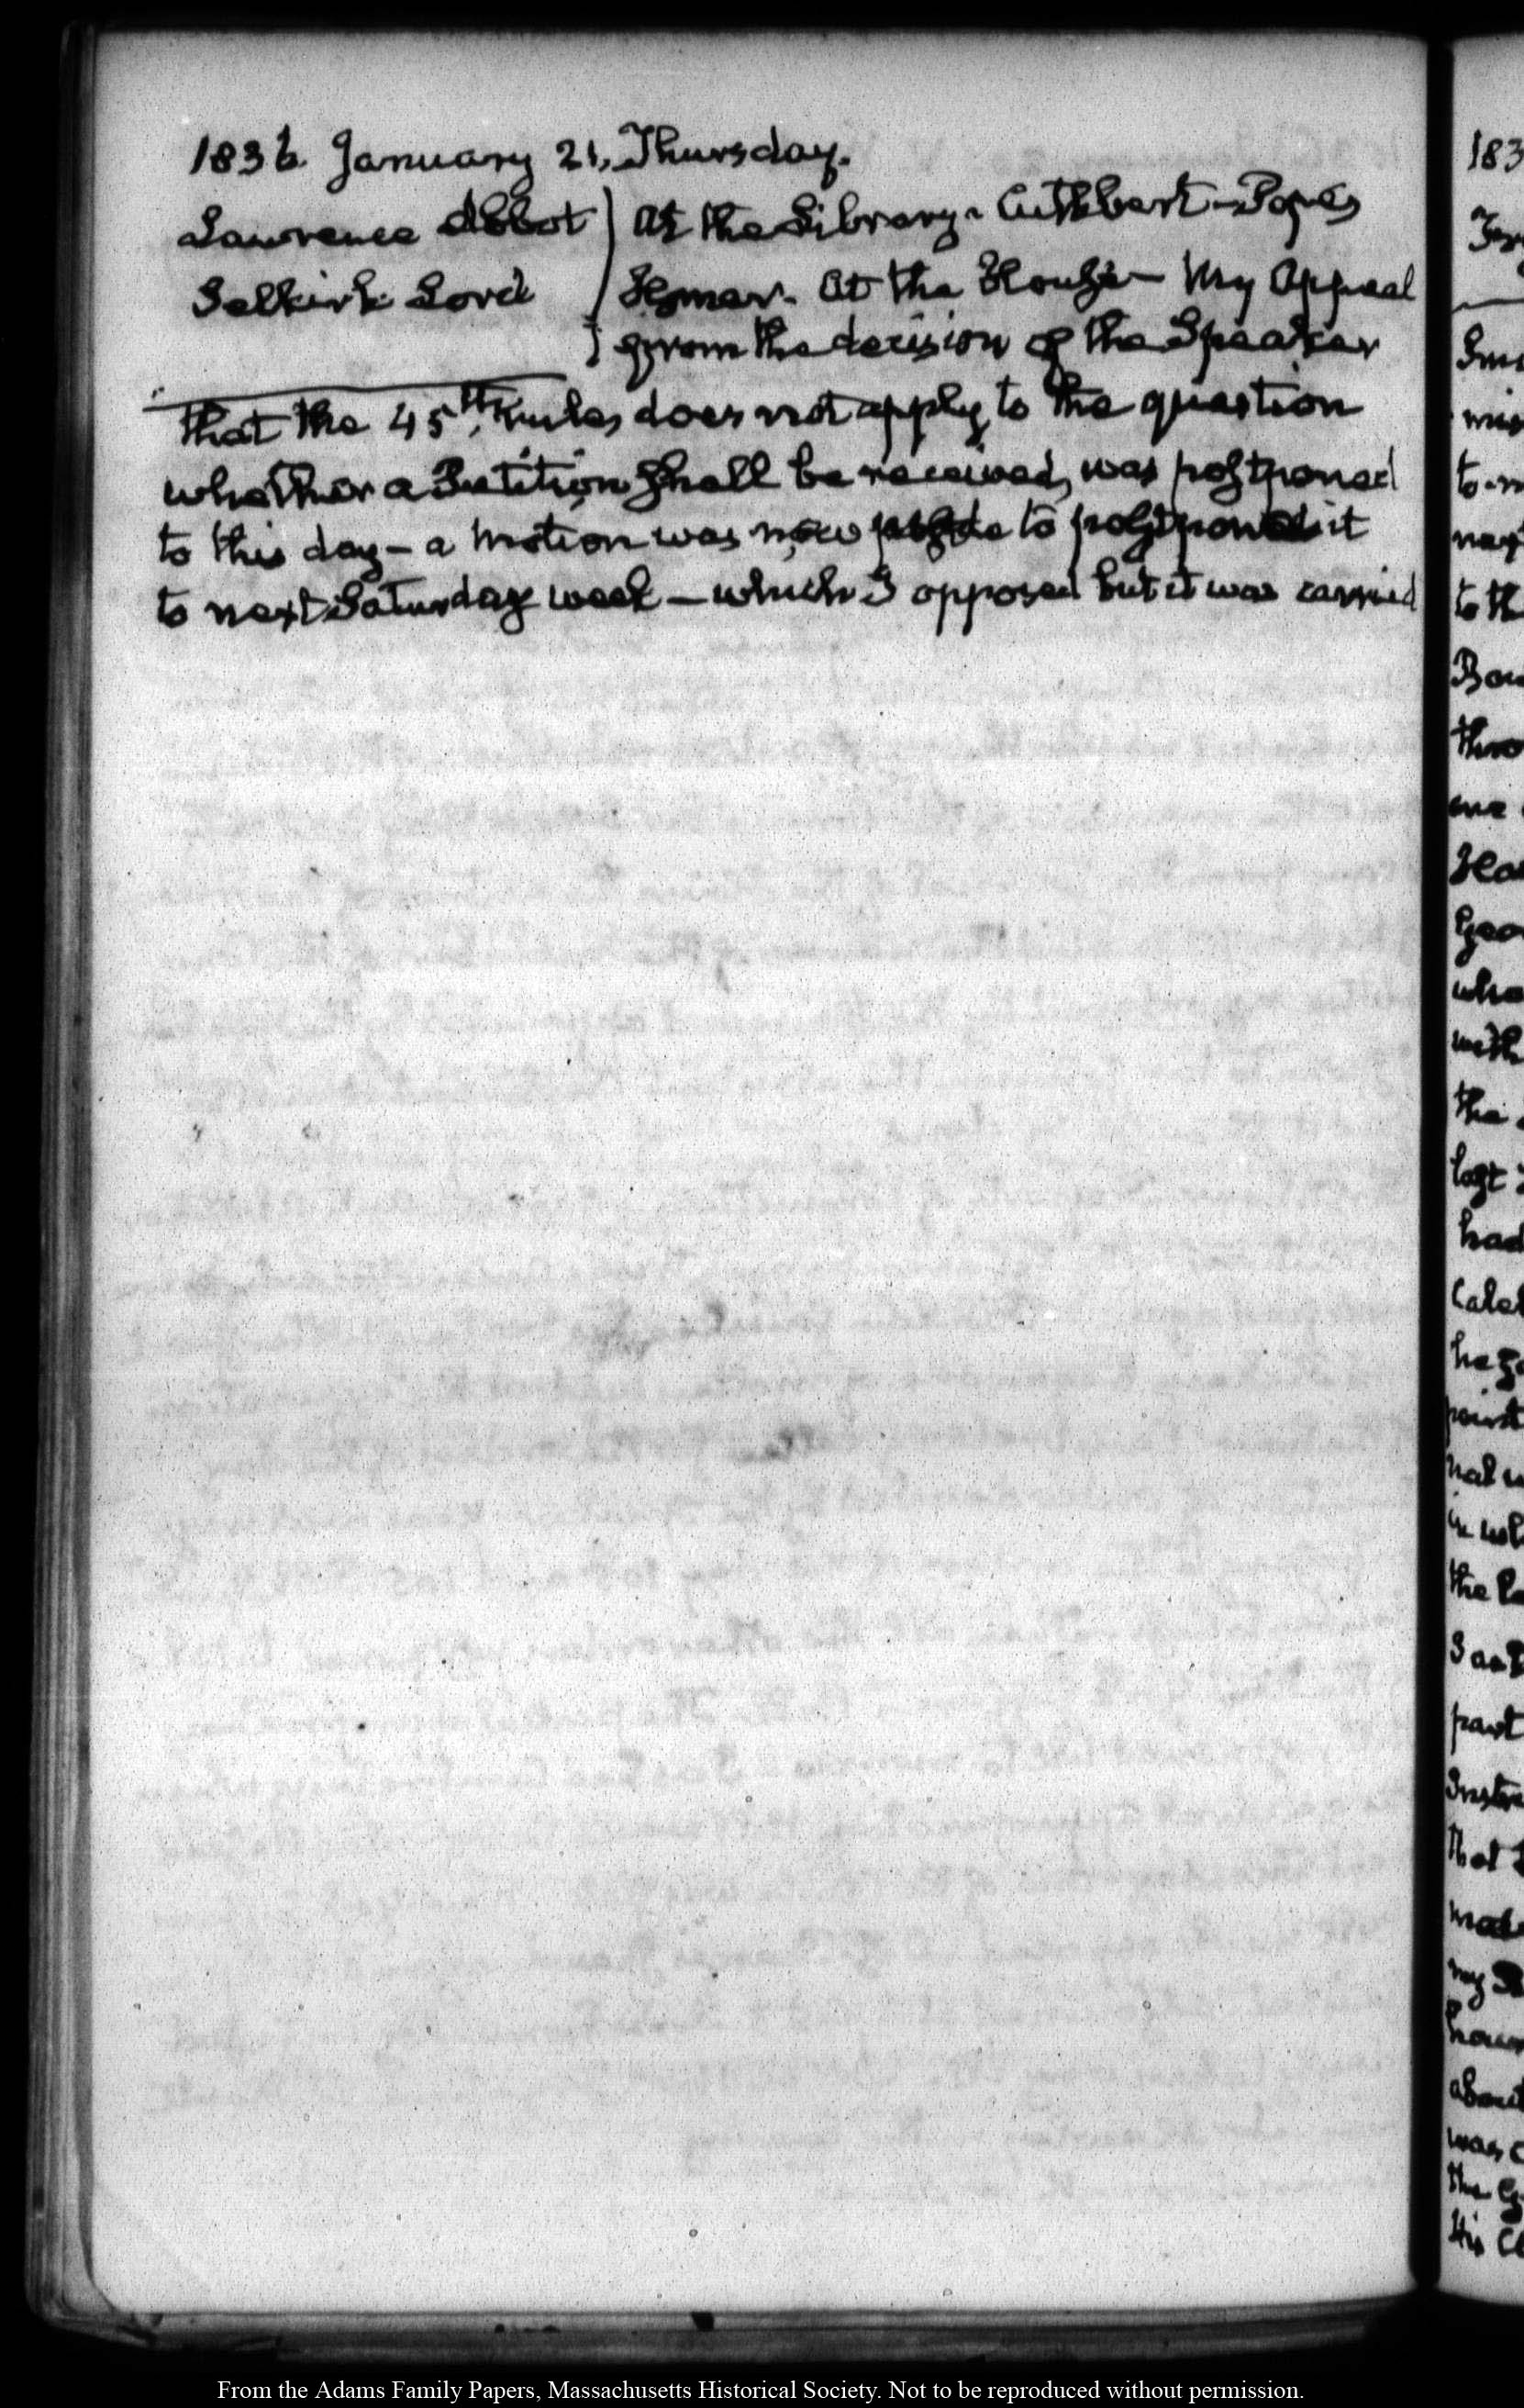 1836 January 21. Thursday.
Lawrence Abbot
Selkirk Lord
At the Library. Cuthbert – Pope's
Homer. At the House – My Appeal
from the decision of the Speaker
that the 45th rule, does not apply, to the question
whether a Petition shall be received, was postponed
to this day – a motion was now to postpone it
to next Saturday week – which I opposed but it was carried
183
to m
to th
Bou
thro
Geo
who
with
the
last
had
Cale
point
the
I as
part
that
made
my
hour
about
was
the
His
From the Adams Family Papers, Massachusetts Historical Society. Not to be reproduced without permission.